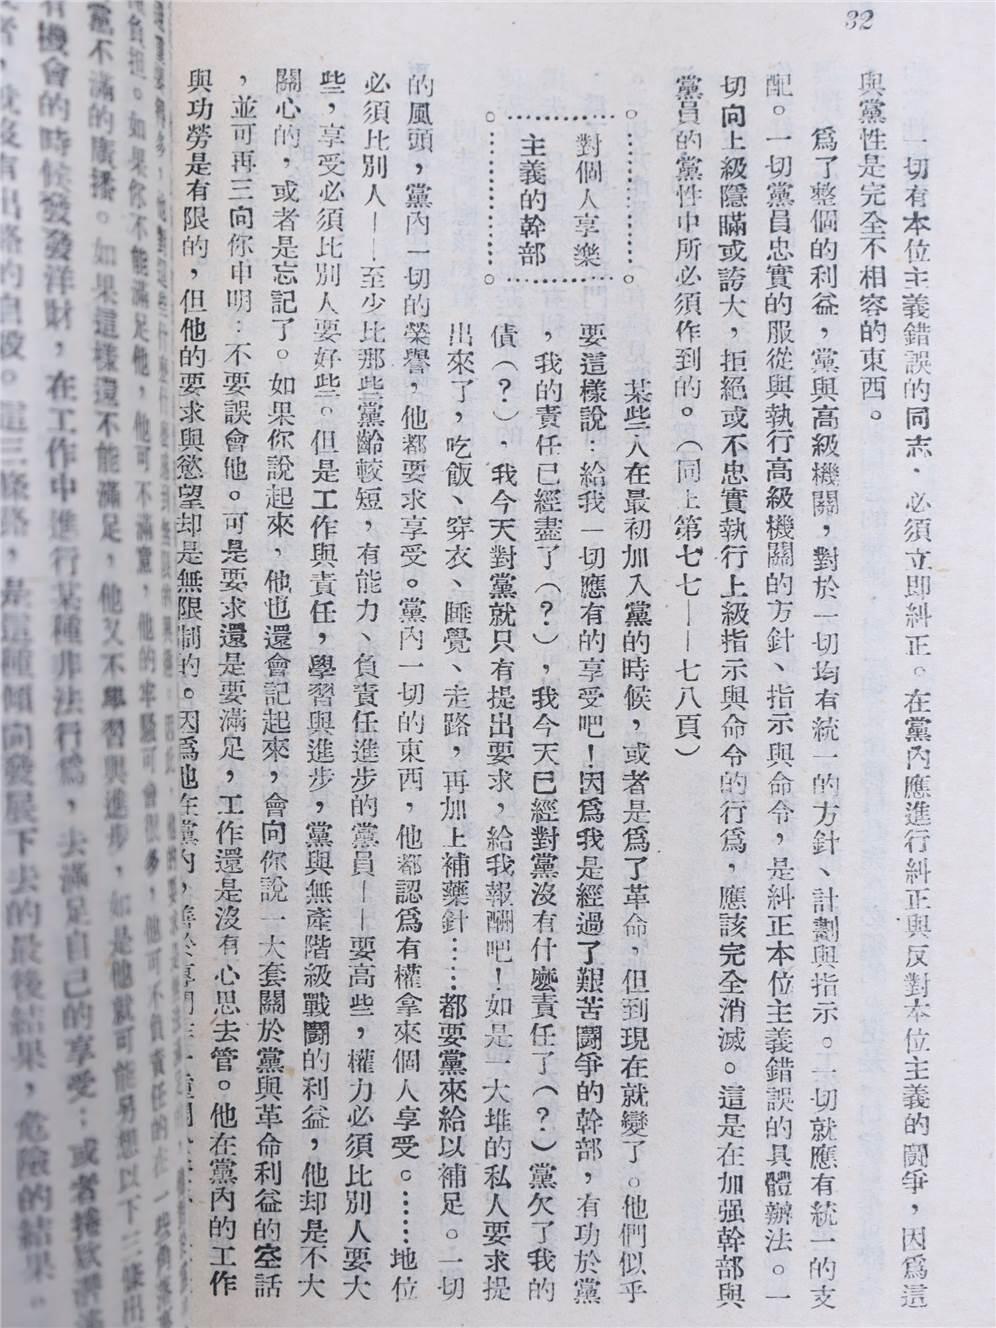 32
一切有本位主義錯誤的同志，必須立即糾正。在黨內應進行糾正與反對本位主義的鬭爭，因爲這
與黨性是完全不相容的東西。
爲了整個的利益，黨與高級機關，對於一切均有統一的方針、計劃與指示。一切就應有統一的支
配。一切黨員忠實的服從與執行高級機關的方針、指示與命令，是糾正本位主義錯誤的具體辦法。一
切向上級隱瞞或誇大，拒絕或不忠實執行上級指示與命令的行爲，應該完全消滅。這是在加强幹部與
黨員的黨性中所必須作到的。（同上第七七——七八頁）
對個人享樂
主義的幹部
某些人在最初加入黨的時候，或者是爲了革命，但到現在就變了。他們似乎
要這樣說：給我一切應有的享受吧！因爲我是經過了艱苦鬭爭的幹部，有功於黨
，我的責任已經盡了（？），我今天已經對黨沒有什麽責任了（？）黨欠了我的
債（？）．我今天對黨就只有提出要求，給我報酬吧！如是一大堆的私人要求提
出來了，吃飯、穿衣、睡覺、走路，再加上補藥針……都要黨來給以補足。一切
的風頭，黨內一切的榮譽，他都要求享受。黨內一切的東西，他都認爲有權拿來個人享受。……地位
必須比別人——至少比那些黨齡較短，有能力、負責任進步的黨員——要高些，權力必須比別人要大
些，享受必須比別人要好些。但是工作與責任，學習與進步，黨與無產階級戰鬭的利益，他却是不大
關心的，或者是忘記了。如果你說起來，他也還會記起來，會向你說一大套關於黨與革命利益的空話
，並可再三向你申明：不要誤會他。可是要求還是要滿足，工作還是沒有心思去管。他在黨內的工作
與功勞是有限的，但他的要求與慾望却是無限制的。因爲他在黨內，善於專門在
負担。如果你不能滿足他，他可不滿黨，他的牢騷可會很多，他可不負責任的在
黨不滿的廣播。如果這樣還不能滿足，他又不學習與進步，如是他就可能另想以下三條出
有機會的時候發發洋財，在工作中進行某種非法行爲，去滿足自己的享受；或者捲款潛逃
沒有出路的自殺。這三條路，是這種傾向發展下去的最後結果，危險的結果。